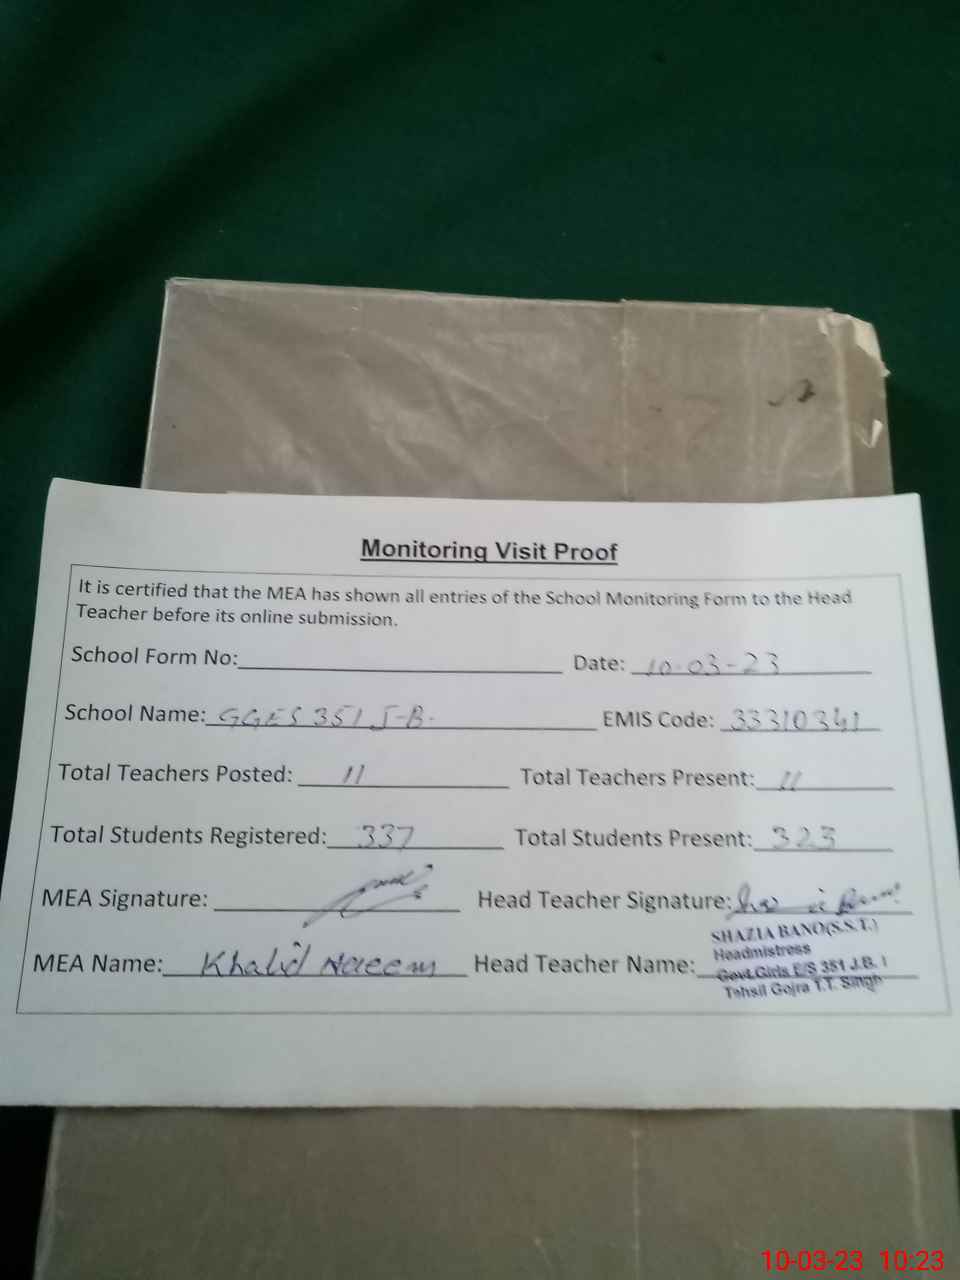 Monitoring Visit Proof
It is certified that the MEA has shown all entries of the School Monitoring Form to the Head
Teacher before its online submission.
School Form No: Date: 10-03-23
School Name: GGES 351 J-B. EMIS Code: 33310341
Total Teachers Posted: 11 Total Teachers Present: 11
Total Students Registered: 337 Total Students Present: 323
MEA Signature: Head Teacher Signature:
MEA Name: Khalid Naeem Head Teacher Name:
SHAZIA BANO(S.S.T.)
Headmistress
Govt.Girls E/S 351 J.B. I
Tehsil Gojra T.T. Singh
10-03-23 10:23